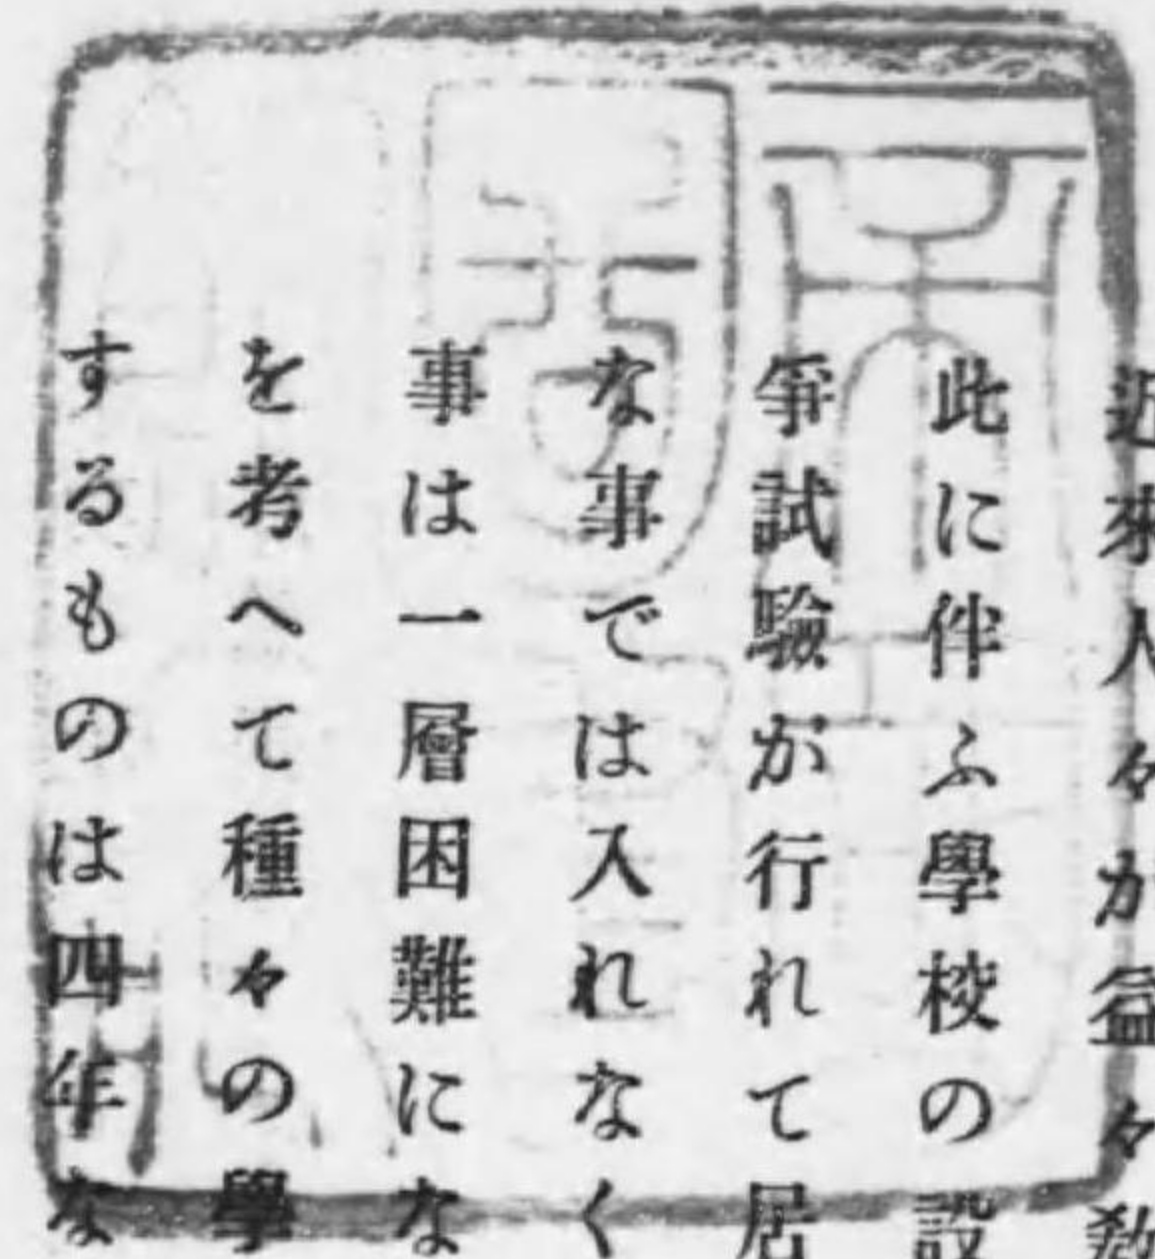 近來人々が益々敎
此に伴ふ學校の設
爭試驗が行れて居
な事では入れなく
事は一層困難にな
を考へて種々の學
するものは四年な